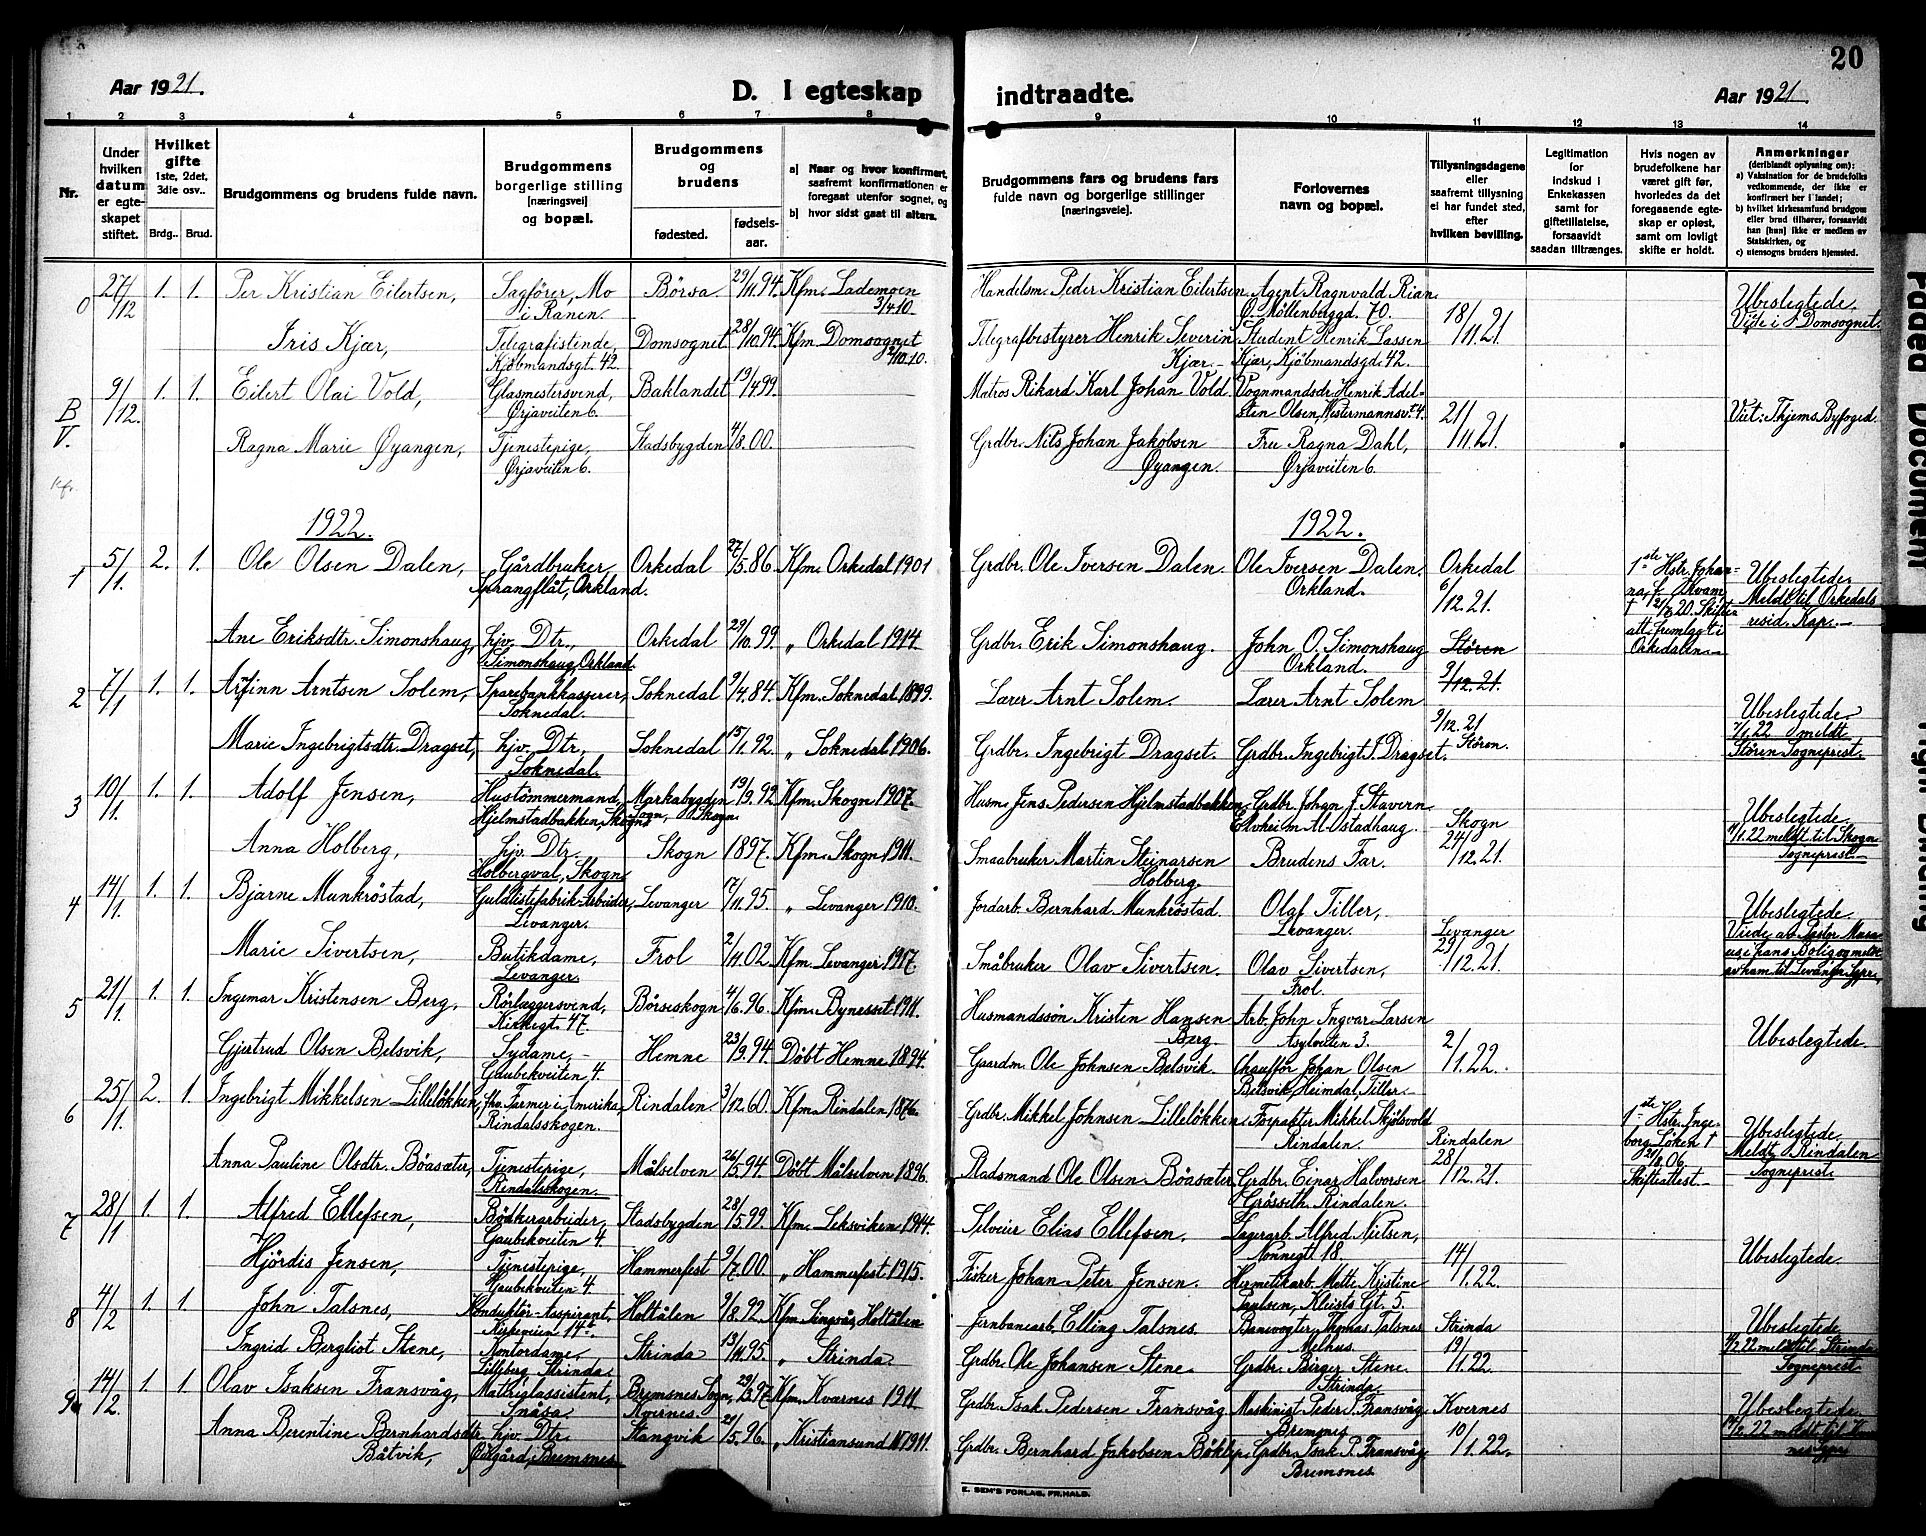 20
Aar 1921.
D. I egteskap
indtraadte.
Aar 1921.
1 2 3 4 5 6 7 8
9 10 11 12 13 14
Nr.
Under hvilken datum er egteskapet stiftet.
Hvilket gifte 1ste, 2det, 3die osv..
Brdg.. Brud.
Brudgommens og brudens fulde navn.
Brudgommens borgerlige stilling [næringsvei] og bopæl.
Brudgommens og brudens
fødested.
fødsels-aar.
a) Naar og hvor konfirmert, saafremt konfirmationen er foregaat utenfor sognet, og
b) hvor sidst gaat til alters.
Brudgommens fars og brudens fars fulde navn og borgerlige stillinger [næringsveie].
Forlovernes navn og bopæl.
Tillysningsdagene eller saafremt tillysning ei har fundet sted, efter hvilken bevilling.
Legitimation for indskud i Enkekassen samt for giftetillatelse, forsaavidt saadan tiltrænges.
Hvis nogen av brudefolkene har været gift før, hvorledes da det foregaaende egteskap er opløst, samt om lovligt skifte er holdt.
Anmerkninger (deriblandt oplysning om): a) Vaksination for de brudefolks vedkommende, der ikke er konfirmert her i landet; b) hvilket kirkesamfund brudgom eller brud tilhører, forsaavidt han [hun] ikke er medlem av Statskirken, og c) utensogns bruders hjemsted.
0 27/12 1. 1. Per Kristian Eilertsen, Sagfører, Mo i Ranen. Börsa 29/11.94 Kfm. Lademoen 3/4 10 Handelsm. Peder Kristian Eilertsen Agent Ragnvald Rian Ø. Möllenberggd. 70. 18/11.21. Ubeslegtede, Viede i Domsognet.
Iris Kjær, Telegrafistinde, Kjøbmandsgt. 42. Domsognet 28/10.94. Kfm. Domsognet 2/10.10. Telegrafbestyrer Henrik Severin Kjær. Student Henrik Lassen Kjær, Kjøbmandsgd. 42.
B/V. 9/12. 1. 1. Eilert Olai Vold, Glasmestersvend, Ørjaveiten 6. Baklandet 19/4 99. Matros Rikard Karl Johan Vold. Vognmandsdr. Henrik Adelsten Olsen, Westermannsvt. 4. 21/11.21. Viet: Thjems Byfoged.
Ragna Marie Øyangen, Tjenestepige, Ørjaveiten 6. Stadsbygden 4/8.00. Grdbr. Nils Johan Jakobsen Øyangen. Fru Ragna Dahl, Ørjaveiten 6.
1922.
1922.
1 5/1. 2. 1. Ole Olsen Dalen, Gårdbruker, Sprangflåt, Orkland. Orkedal 27/5.86 Kfm. Orkedal 1901 Grdbr. Ole Iversen Dalen. Ole Iversen Dalen. Orkland. Orkedal 6/12.21. 1ste Hstr. Johanna, f. Kvam, † 21/7.20. Skifteatt. fremlagt i Orkedalen. Ubeslegtede. Meldt til Orkedals resid. Kap.
Ane Eriksdtr. Simonshaug, hjv. Dtr., Simonshaug, Orkland. Orkedal 29/10.99. „ Orkedal 1914. Grdbr. Erik Simonshaug. John O. Simonshaug Orkland. Stören 9/12.21.
2 7/1 1. 1. Arfinn Arntsen Solem, Sparebankkasserer, Soknedal. Soknedal 9/4.84. Kfm. Soknedal 1899. Lærer Arnt Solem. Lærer Arnt Solem 9/12.21 Stören. Ubeslegtede 7/1.22 meldt Stören Sogneprest.
Marie Ingebrigtsdtr. Dragset, hjv. Dtr., Soknedal. Soknedal 15/1.92. „ Soknedal 1906. Grdbr. Ingebrigt Dragset. Grdbr. Ingebrigt I. Dragset.
3 10/1. 1. 1. Adolf Jensen, Hustömmermand, Hjelmstadbakken, Skogn Markabygden Sogn, Skogn. 19/9.92 Kfm. Skogn 1907. Husm. Jens Pedersen Hjelmstadbakken. Grdbr. Johan J. Stavern Skogn 24/12.21. Ubeslegtede. 1.22 meldt til Skogn Sogneprest.
Anna Holberg, hjv. Dtr. Holbergval, Skogn. Skogn 1897. Kfm. Skogn 1911. Smaabruker Martin Steinarsen Holberg. Brudens Far.
4 14/1. 1. 1. Bjarne Munkröstad, Guldlistefabrik-Arbeider, Levanger. Levanger 17/11.95. „ Levanger 1910. Jordarb. Bernhard Munkröstad. Olaf Tiller, Levanger. Levanger 29/12.21. Ubeslegtede. Viede av Pastor i hans Bolig og meldt av ham til Levanger
Marie Sivertsen, Butikdame, Levanger. Frol 2/11.02. Kfm. Levanger 1917. Småbruker Olav Sivertsen. Olav Sivertsen, Frol.
5 21/1. 1. 1. Ingemar Kristensen Berg, Rörlæggersvend, Kirkegt. 47. Börseskogn 4/6.96. Kfm. Bynesset 1911. Husmandssön Kristen Hansen Berg. Arb. John Ingvar Larsen Asylveiten 3. 2/1.22. Ubeslegtede.
Gjertrud Olsen Belsvik, Sydame, Gaubekveiten 4. Hemne 23/9.94. Döbt Hemne 1894. Gaardm. Ole Johnsen Belsvik. Chaufför Johan Olsen Belsvik, Heimdal, Tiller.
6 25/11. 2. 1. Ingebrigt Mikkelsen Lillelökken, fhv. Farmer i Amerika, Rindalsskogen. Rindalen 3/12.60. Kfm. Rindalen 1876. Grdbr. Mikkel Johnsen Lillelökken. Forpakter Mikkel Skjölsvold Rindalen. Rindalen 28/12.21. 1ste Hstr. Ingeborg Löken † 21/8.06 Skifteattest. Ubeslegtede, Meldt Rindalen Sogneprest.
Anna Pauline Olsdtr. Böasæter, Tjenestepige, Rindalsskogen. Målselven 26/5.94. Döbt Målselven 1896. Stadsmand Ole Olsen Böasæter. Grdbr. Einar Halvorsen Grösseth, Rindalen.
7 28/1 1. 1. Alfred Ellefsen, Bödkerarbeider, Gaubekveiten 4. Stadsbygden 28/5.99. Kfm. Leksviken 1914. Selveier Elias Ellefsen. Lagerarb. Alfred Nielsen, Nonnegt. 18. 14/1.22. Ubeslegtede.
Hjördis Jensen, Tjenestepige, Gaubekveiten 4. Hammerfest 9/7.00. „ Hammerfest 1915. Fisker Johan Peter Jensen. Hermetikarb. Mette Kristine Paulsen, Kleists Gt. 5.
8 4/2 1. 1. John Talsnes, Konduktör-Aspirant, Kirkeveien 14b. Holtålen 9/8.92. Kfm. Singsås, Holtålen Jernbanearb. Elling Talsnes. Banevogter Thomas Talsnes Melhus. Strinda 19/1.22 Ubeslegtede 4/2.22 meldt til Strinda Sogneprest.
Ingrid Bergliot Stene, Kontordame, Lilleberg, Strinda. Strinda 13/11.95. „ Strinda. Grdbr. Ole Johansen Stene. Grdbr. Birger Stene. Strinda.
9 14/2. 1. 1. Olav Isaksen Fransvåg, Matrialassistent, Snåsa. Bremsnes Sogn, Kvernes. 29/3.97. Kfm. Kvarnes 1911 Grdbr. Isak Pedersen Fransvåg Maskinist Peder I. Fransvåg Bremsnes Kvernes 10/1.22. Ubeslegtede 14/2.22 meldt til
Anna Berentine Bernhardsdtr. Båtvik, hjv. Dtr. Ødegård, Bremsnes. Stangvik 21/5.96. „ Kristiansund N 1911. Grdbr. Bernhard Jakobsen Grdbr. Isak P. Fransvåg, Bremsnes.
E. SEM'S FORLAG, FR.HALD.